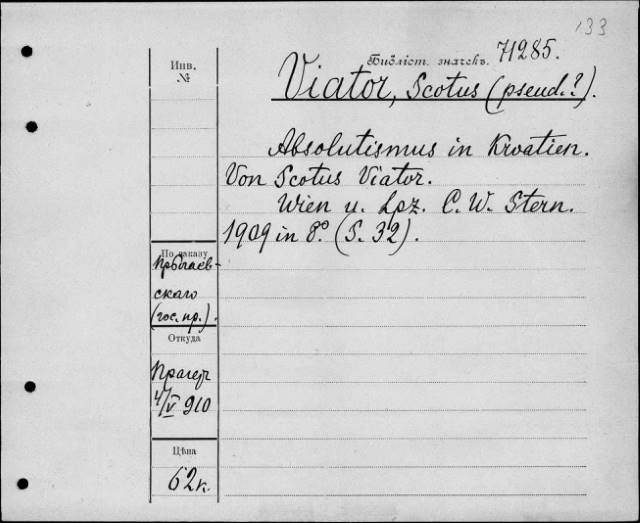 133
Библіот. значекъ. 71285.
Viator, Scotus (pseud.?).
Absolutismus in Kroatien.
Von Scotus Viator.
Wien u. Lpz. C. W. Stern.
1909 in 8° (S. 32).
Инв.
№
По заказу
скаго
(гос. пр.).
Откуда
Прагеръ
4/V 910
Цѣна
62 к.